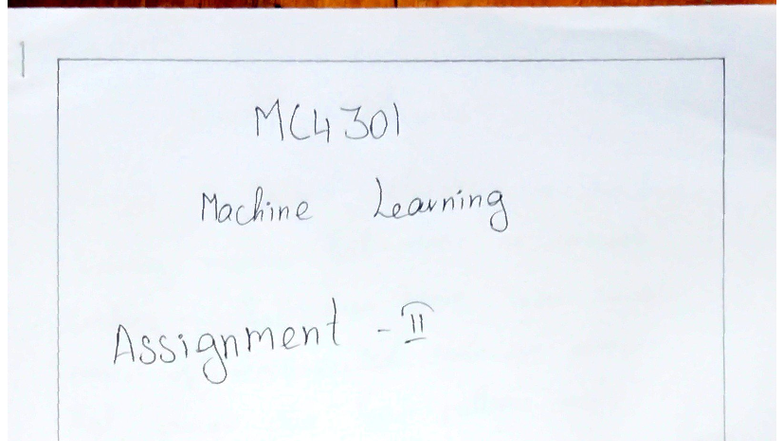 MC4301
Machine Learning
Assignment - II